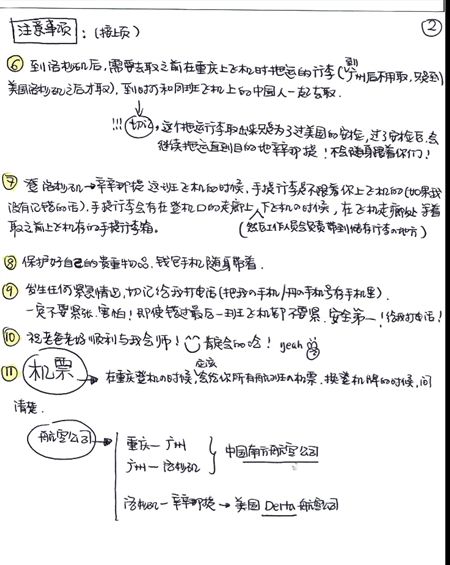 注意事项:(接上页) ②
⑥ 到洛杉矶后,需要去取之前在重庆上飞机时托运的行李(到广州后不用取,只是到
美国洛杉矶之后才取),到时可和同班飞机上的中国人一起去取.
!!! 切记,这个托运行李取出来只是为了过美国的安检,过了安检后,会
继续托运直到目的地辛辛那提!不会随身跟着你们!
⑦ 登洛杉矶→辛辛那提这班飞机的时候,手提行李是不跟着你上飞机的(如果我
没有记错的话).手提行李会存在登机口的走廊上,下飞机的时候,在飞机走廊处等着
取之前上飞机存的手提行李箱. (然后工作人员会负责带到储存行李的地方)
⑧ 保护好自己的贵重物品.钱包手机随身带着.
⑨ 发生任何紧急情况,切记给我打电话(把我的手机/ 的手机号存手机里).
一定不要紧张.害怕!即使错过最后一班飞机都不要紧.安全第一!给我打电话!
⑩ 祝老爸老妈顺利与我会师! 肯定会的哈! yeah
⑪ 机票 → 在重庆登机的时候,应该会给你所有航班的机票.换登机牌的时候,问
清楚.
航空公司
重庆一广州
广州一洛杉矶
中国南方航空公司
洛杉矶一辛辛那提→美国Delta航空公司